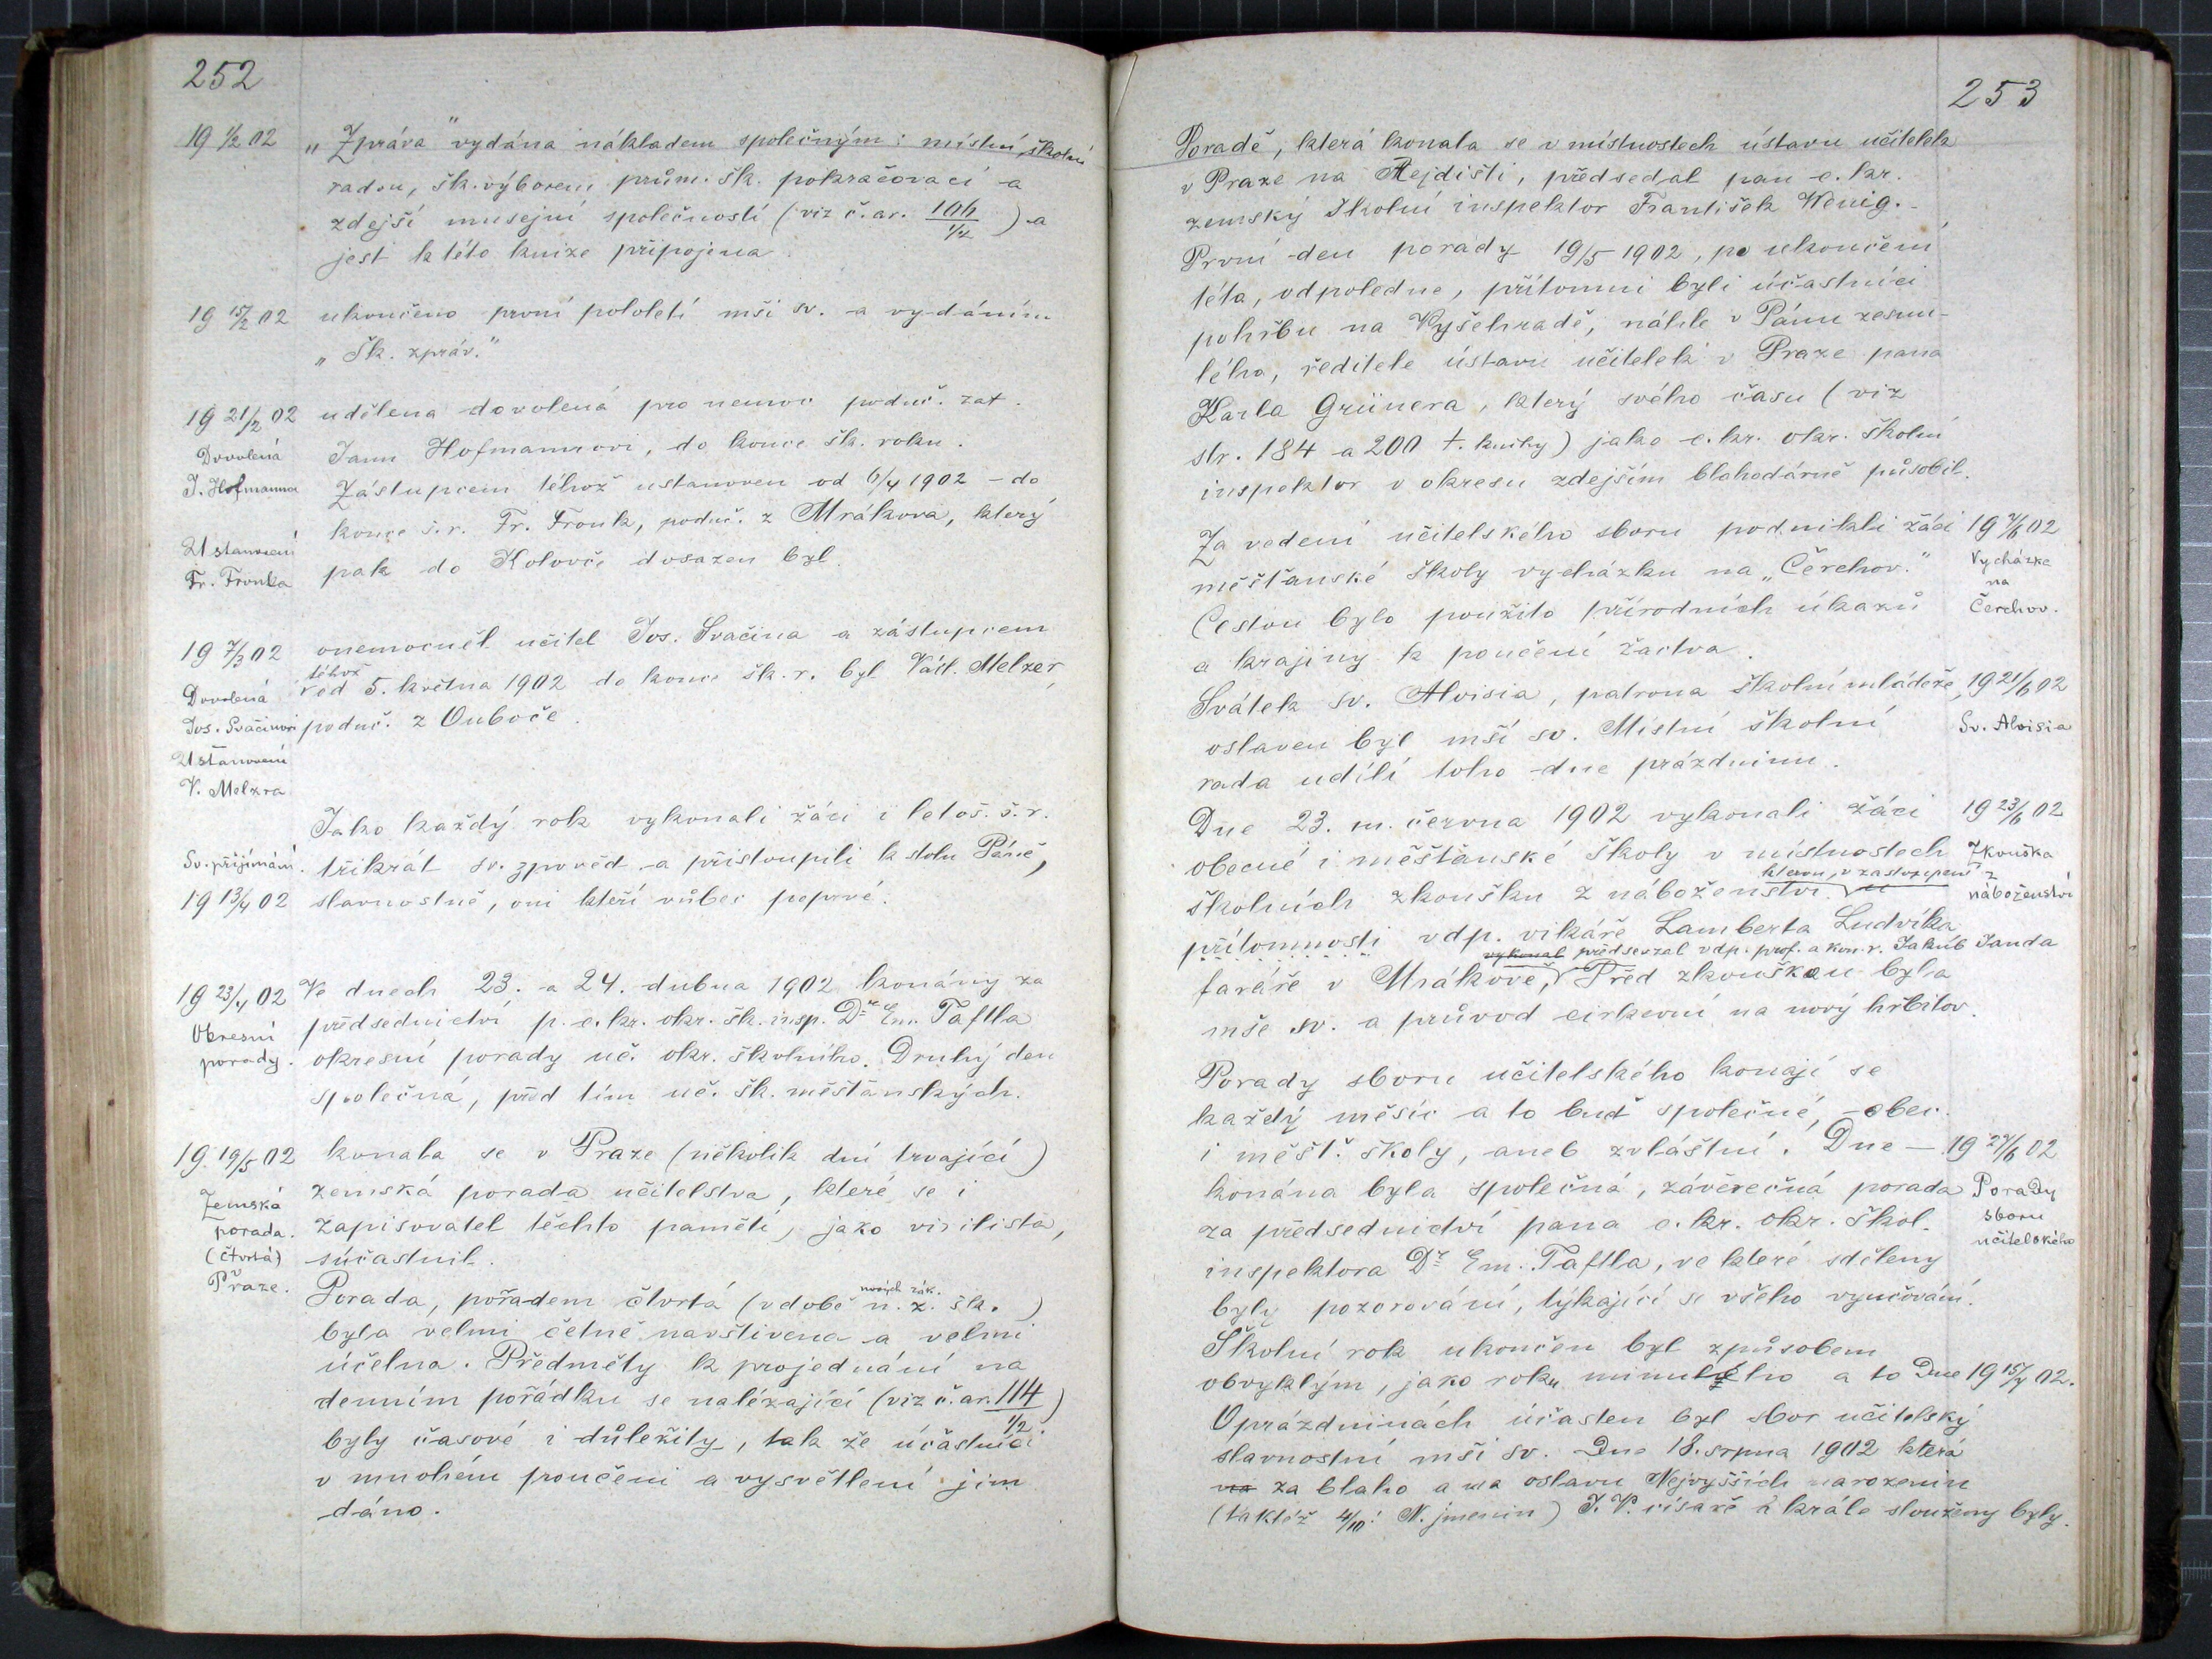 252
19 1/2 02 „Zpráva" vydána nákladem společným: místní školní
radou, šk. výborem prům. šk. pokračovací a
zdejší musejní společností (viz č. ar. 106/1/2) a
jest k této knize připojena
19 15/2 02 ukončeno první pololetí mší sv. a vydáním
„Šk. zpráv."
19 21/2 02 udělena dovolená pro nemoc poduč. zat.
Dovolená Janu Hofmannovi, do konce šk. roku.
J. Hofmanna Zástupcem téhož ustanoven od 6/4 1902 – do
konce š. r. Fr. Fronk, poduč. z Mrákova, který
Ustanovení
Fr. Fronka pak do Kolovče dosazen byl.
19 7/3 02 onemocněl učitel Jos. Svačina a zástupcem
téhož
Dovolená od 5. května 1902 do konce šk. r. byl Václ. Melzer,
Jos. Svačinovi poduč. z Ouboče.
Ustanovení
V. Melzra
Jako každý rok vykonali žáci i letoš. š. r.
Sv. přijímání. třikrát sv. zpověď a přistoupili k stolu Páně,
19 13/4 02 slavnostně, oni kteří vůbec poprvé.
19 23/4 02 Ve dnech 23. a 24. dubna 1902 konány za
Okresní předsednictví p. c. kr. okr. šk. insp. Dr Em. Taftla
porady. okresní porady uč. okr. školního. Druhý den
společná, před tím uč. šk. měšťanských.
19 19/5 02 konala se v Praze (několik dní trvající)
Zemská zemská porada učitelstva, které se i
porada. zapisovatel těchto pamětí, jako visilista,
(čtvrtá) súčastnil.
Praze.
nových zák.
Porada, pořadem čtvrtá (v době n. z. šk.)
byla velmi četně navštívena a velmi
účelna. Předměty k projednání na
denním pořádku se nalézající (viz č. ar. 114/1/2)
byly časové i důležity, tak že účastníci
v mnohém poučení a vysvětlení jim
dáno.
253
Poradě, která konala se v místnostech ústavu učitelek
v Praze na Rejdišti, předsedal pan c. kr.
zemský školní inspektor František Wenig.
První den porady 19/5 1902, po ukončení
téta, odpoledne, přítomni byli účastníci
pohřbu na Vyšehradě, náhle v Pánu zesnu-
lého, ředitele ústavu učitelek v Praze pana
Karla Grünera, který svého času (viz
str. 184 a 200 t. knihy) jako c. kr. okr. školní
inspektor v okresu zdejším blahodárně působil.
Za vedení učitelského sboru podnikli žáci 19 /6 02
měšťanské školy vycházku na „Čerchov." Vycházka
na
Cestou bylo použito přírodních úkazů Čerchov.
a krajiny k poučení žactva.
Svátek sv. Aloisia, patrona školní mládeže, 19 21/6 02
oslaven byl mší sv. Místní školní Sv. Aloisia
rada udílí toho dne prázdninu.
Dne 23. m. června 1902 vykonali žáci 19 23/6 02
obecné i měšťanské školy v místnostech Zkouška
kterou, v zastoupení z
školních zkoušku z náboženství náboženství
přítomnosti vdp. vikáře Lamberta Ludvíka
vykonal předsedal vdp. prof. a kon. r. Jakub Janda
faráře v Mrákově, Před zkouškou byla
mše sv. a průvod církevní na nový hřbitov.
Porady sboru učitelského konají se
každý měsíc a to buď společné, obec.
i měšť. školy, aneb zvláštní. Dne – 19 27/6 02
konána byla společná, závěrečná porada Porady
za předsednictví pana c. kr. okr. škol. sboru
učitelského
inspektora Dr Em. Taftla, ve které sděleny
byly pozorování, týkající se všeho vyučování.
Školní rok ukončen byl způsobem
obvyklým, jako roku minulého a to Dne 19 15/7 02.
O prázdninách účasten byl sbor učitelský
slavnostní mši sv. Dne 18. srpna 1902 která
na za blaho a na oslavu Nejvyšších narozenin
(taktéž 4/10: N. jmenin) J. V. císaře a krále slouženy byly.